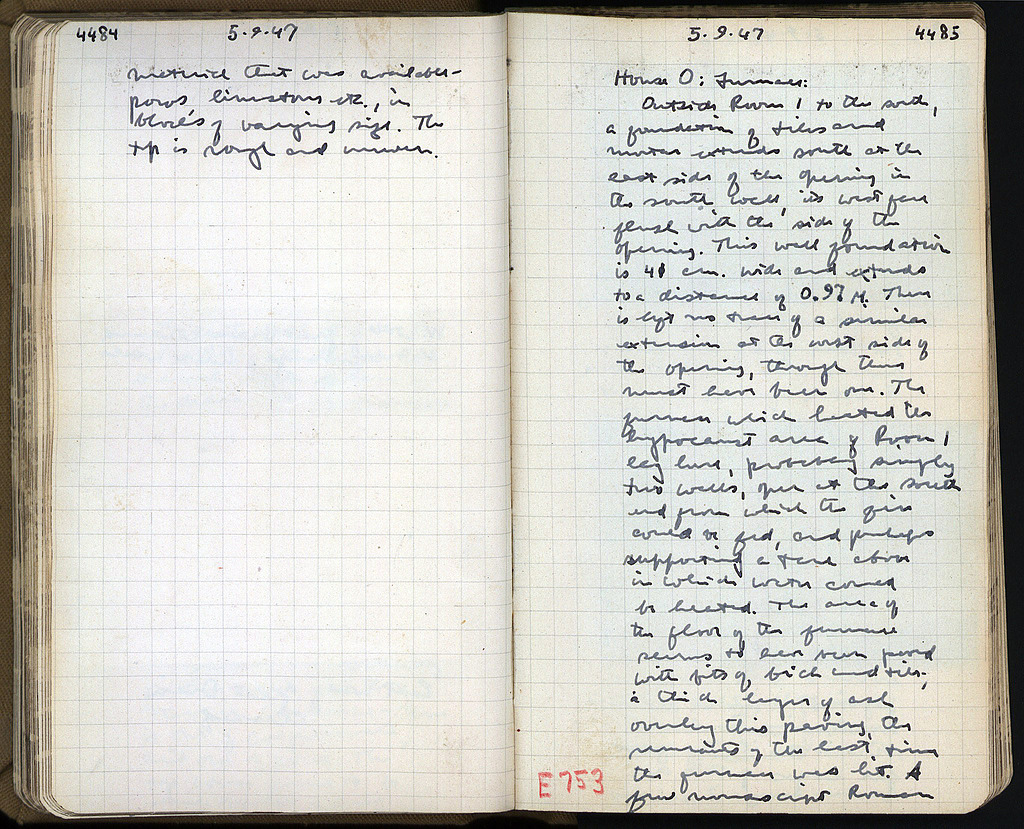 4484
5.9.47
material that was available –
poros limestone etc., in
blocks of varying size. The
top is rough and uneven.
5.9.47
4485
House O: Furnace:
Outside Room 1 to the south,
a foundation of tiles and
mortar extends south at the
east side of the opening in
the south wall, its west face
flush with the side of the
opening. This wall foundation
is 41 cm. wide and extends
to a distance of 0.97 M. There
is left no trace of a similar
extension at the west side of
the opening, though there
must have been one. The
furnace which heated the
hypocaust area of Room 1
lay here, probably simply
two walls, open at the south
end from which the fire
could be fed, and perhaps
supporting a tank above
in which water could
be heated. The area of
the floor of the furnace
seems to have been paved
with bits of brick and tile;
a thick layer of ash
overlay this paving, the
remnants of the last time
the furnace was lit. A
few nondescript Roman
E 753